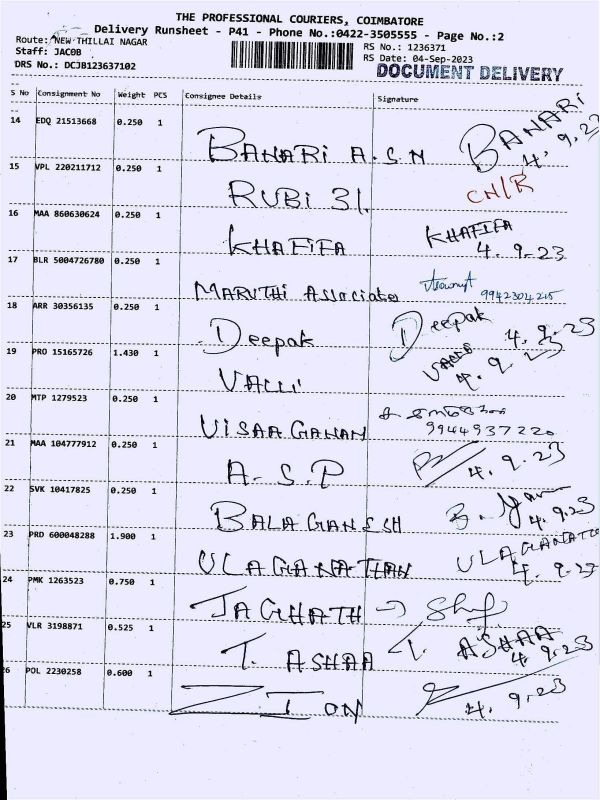 THE PROFESSIONAL COURIERS, COIMBATORE
Delivery Runsheet - P41 - Phone No.:0422-3505555 - Page No.:2
Route: NEW THILLAI NAGAR
RS No.: 1236371
Staff: JACOB
RS Date: 04-Sep-2023
DRS No.: DCJB123637102
DOCUMENT DELIVERY
S No Consignment No Weight PCS Consignee Details Signature
14 EDQ 21513668 0.250 1 BANARI A.S.N BANARI 4.9.23
15 VPL 220211712 0.250 1 RUBI 31. CN/R
16 MAA 860630624 0.250 1 KHAFIFA KHAFIFA 4.9.23
17 BLR 5004726780 0.250 1 MARUTHI Associates 9942304215
18 ARR 30356135 0.250 1 Deepak Deepak 4.9.23
19 PRO 15165726 1.430 1 VALLI VALLI 4.9.23
20 MTP 1279523 0.250 1 VISAA GAHAN 9944937220
21 MAA 104777912 0.250 1 A.S.P 4.9.23
22 SVK 10417825 0.250 1 BALA GANESH 4.9.23
23 PRD 600048288 1.900 1 ULAGANATHAN ULAGANATH 4.9.23
24 PMK 1263523 0.750 1 JAGHATH →
25 VLR 3198871 0.525 1 T. ASHAA T. ASHAA 4.9.23
26 POL 2230258 0.600 1 ZION 4.9.23